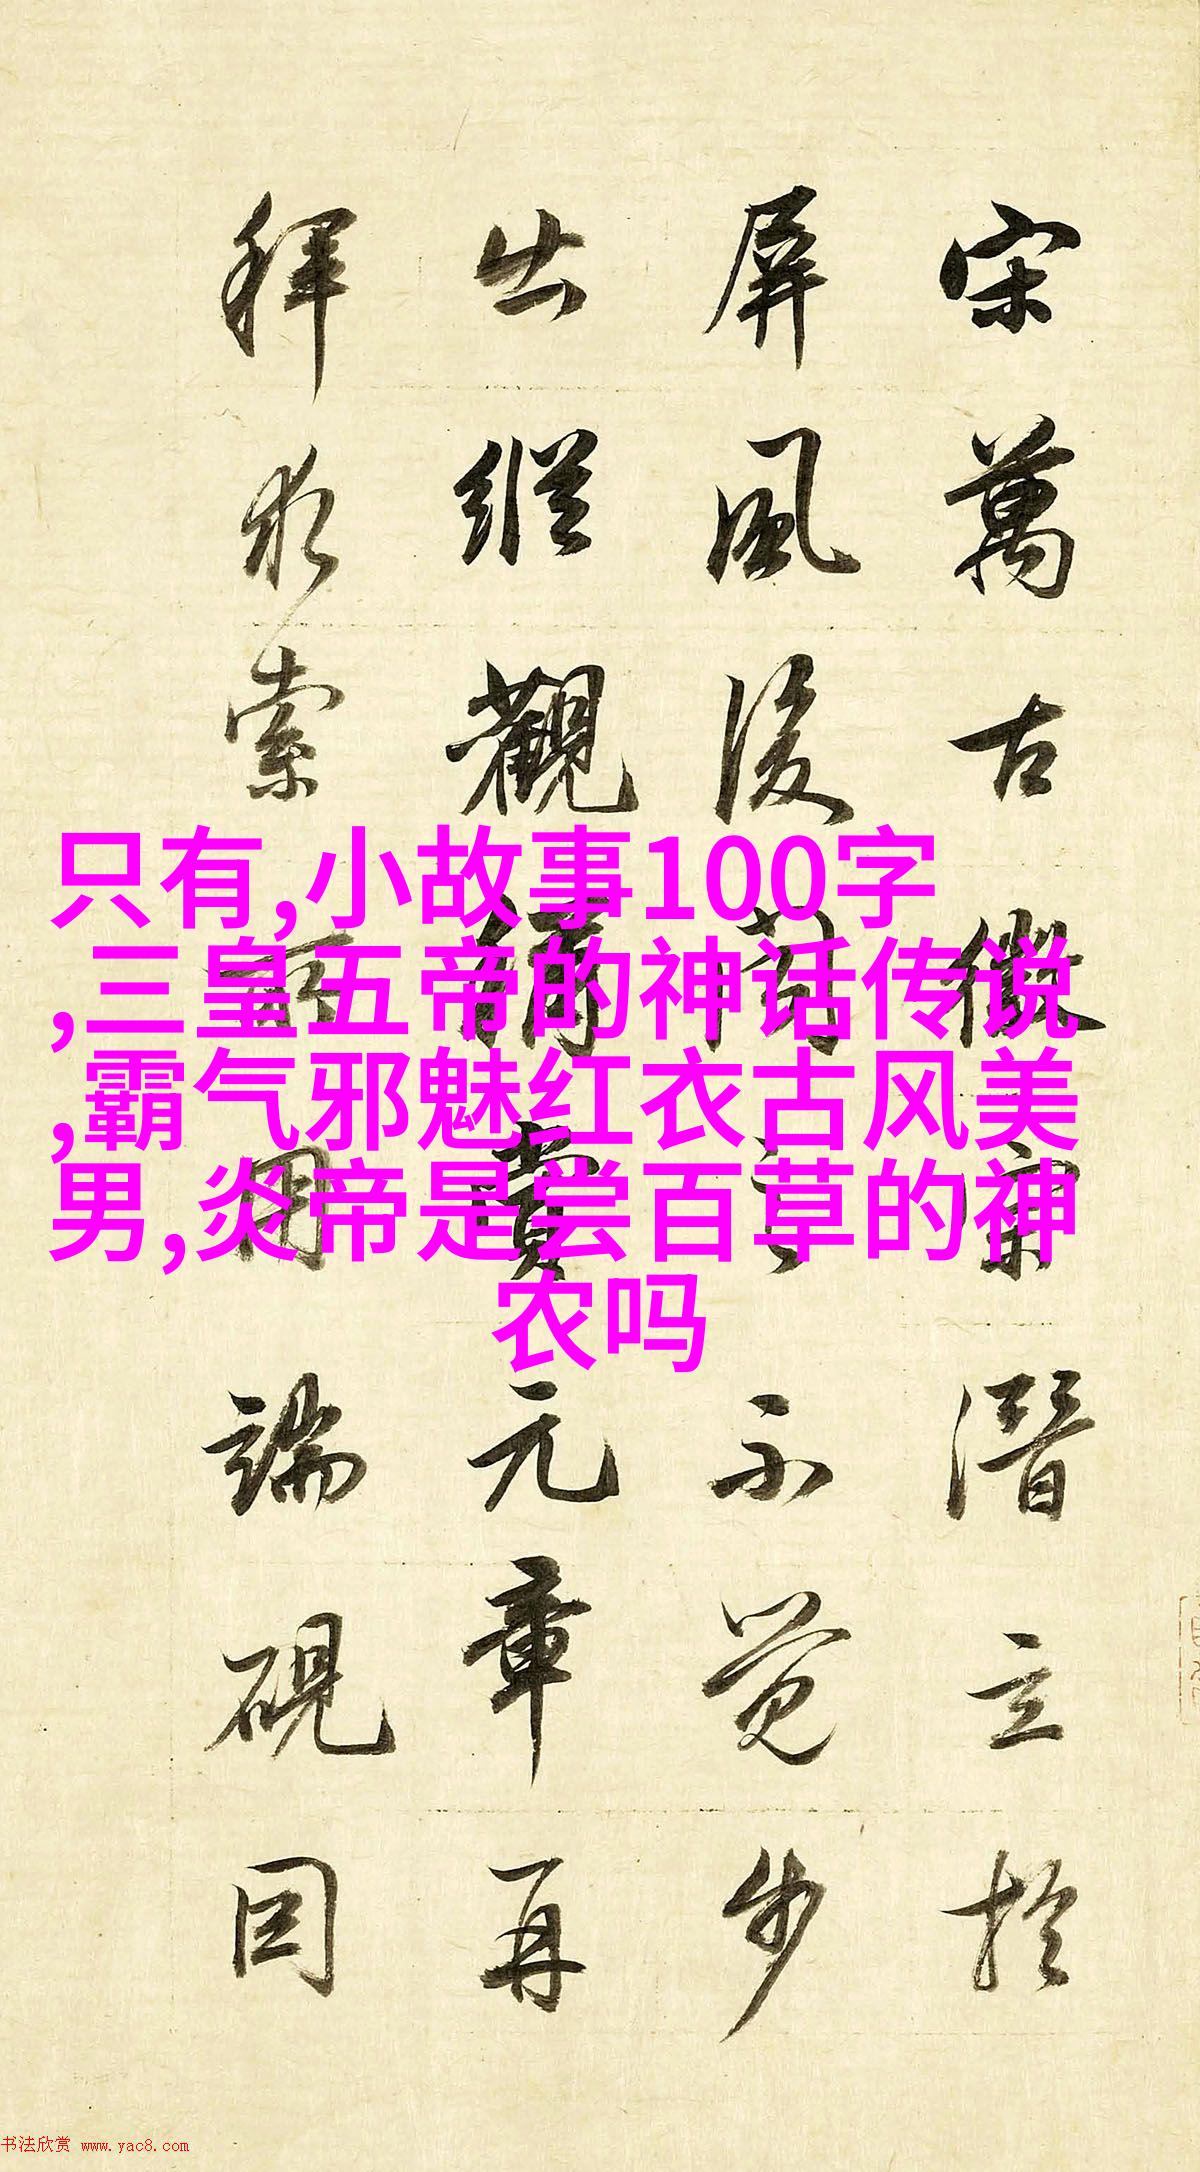 宋萬古徽宗潛立於
屏風後聞之不覺步
出縱觀稱賞元章再
拜求索所用端硯因
只有,小故事100字
,三皇五帝的神话传说
,霸气邪魅红衣古风美
男,炎帝是尝百草的神
农吗
书法欣赏 www.yac8.com